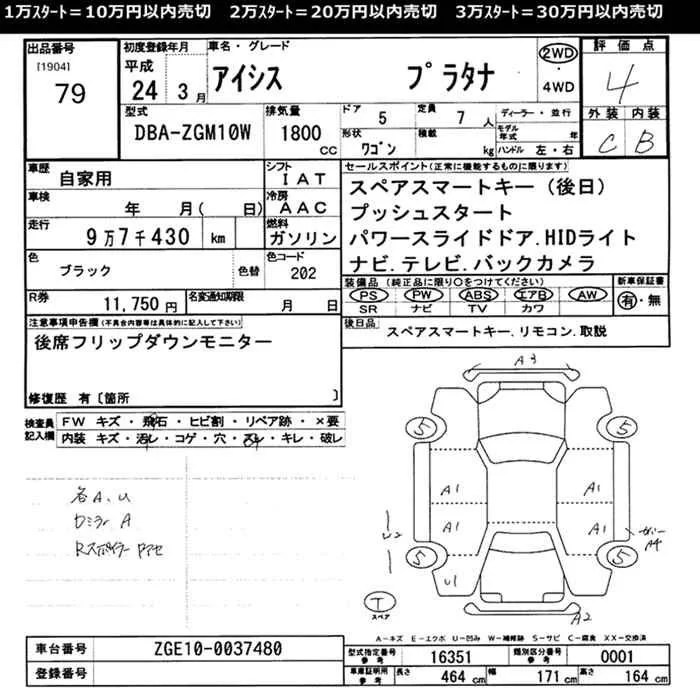 1万ｽﾀｰﾄ＝10万円以内売切　2万ｽﾀｰﾄ＝20万円以内売切　3万ｽﾀｰﾄ＝30万円以内売切
出品番号 [1904] 79
初度登録年月 平成 24 3月
車名・グレード アイシス プラタナ
2WD ・ 4WD
評価点 4
外装 C 内装 B
型式 DBA-ZGM10W
排気量 1800 CC
ドア 5
定員 7 人
形状 ワゴン
積載 kg
ディーラー・並行
モデル年式 年
ハンドル 左・右
車歴 自家用
シフト IAT
車検 年 月( 日)
冷房 AAC
走行 9万7千430 km
燃料 ガソリン
色 ブラック 色替
色コード 202
R券 11,750 円
名変通知期限 月 日
セールスポイント(正常に機能するものに限ります)
スペアスマートキー（後日）
プッシュスタート
パワースライドドア.HIDライト
ナビ.テレビ.バックカメラ
装備品（純正品に限り○をつけてください）
PS PW ABS エアB AW
SR ナビ TV カワ
新車保証書 有・無
後日品 スペアスマートキー.リモコン.取説
注意事項申告欄(不具合内容等は具体的に記入して下さい)
後席フリップダウンモニター
修復歴 有〔箇所 〕
検査員記入欄
FW キズ・飛石・ヒビ割・リペア跡・×要
内装 キズ・汚レ・コゲ・穴・スレ・キレ・破レ
各A、U
A
Rスポイラー
A3
5 5
A1 A1
A1 A1
U2
A4
5 5
U1
T スペア
A2
A－キズ E－エクボ U－凹み W－補修跡 S－サビ C－腐食 XX－交換済
車台番号 ZGE10-0037480
登録番号
型式指定番号 参考 16351
類別区分番号 参考 0001
車庫証明用 参考 長さ 464 cm 幅 171 cm 高さ 164 cm